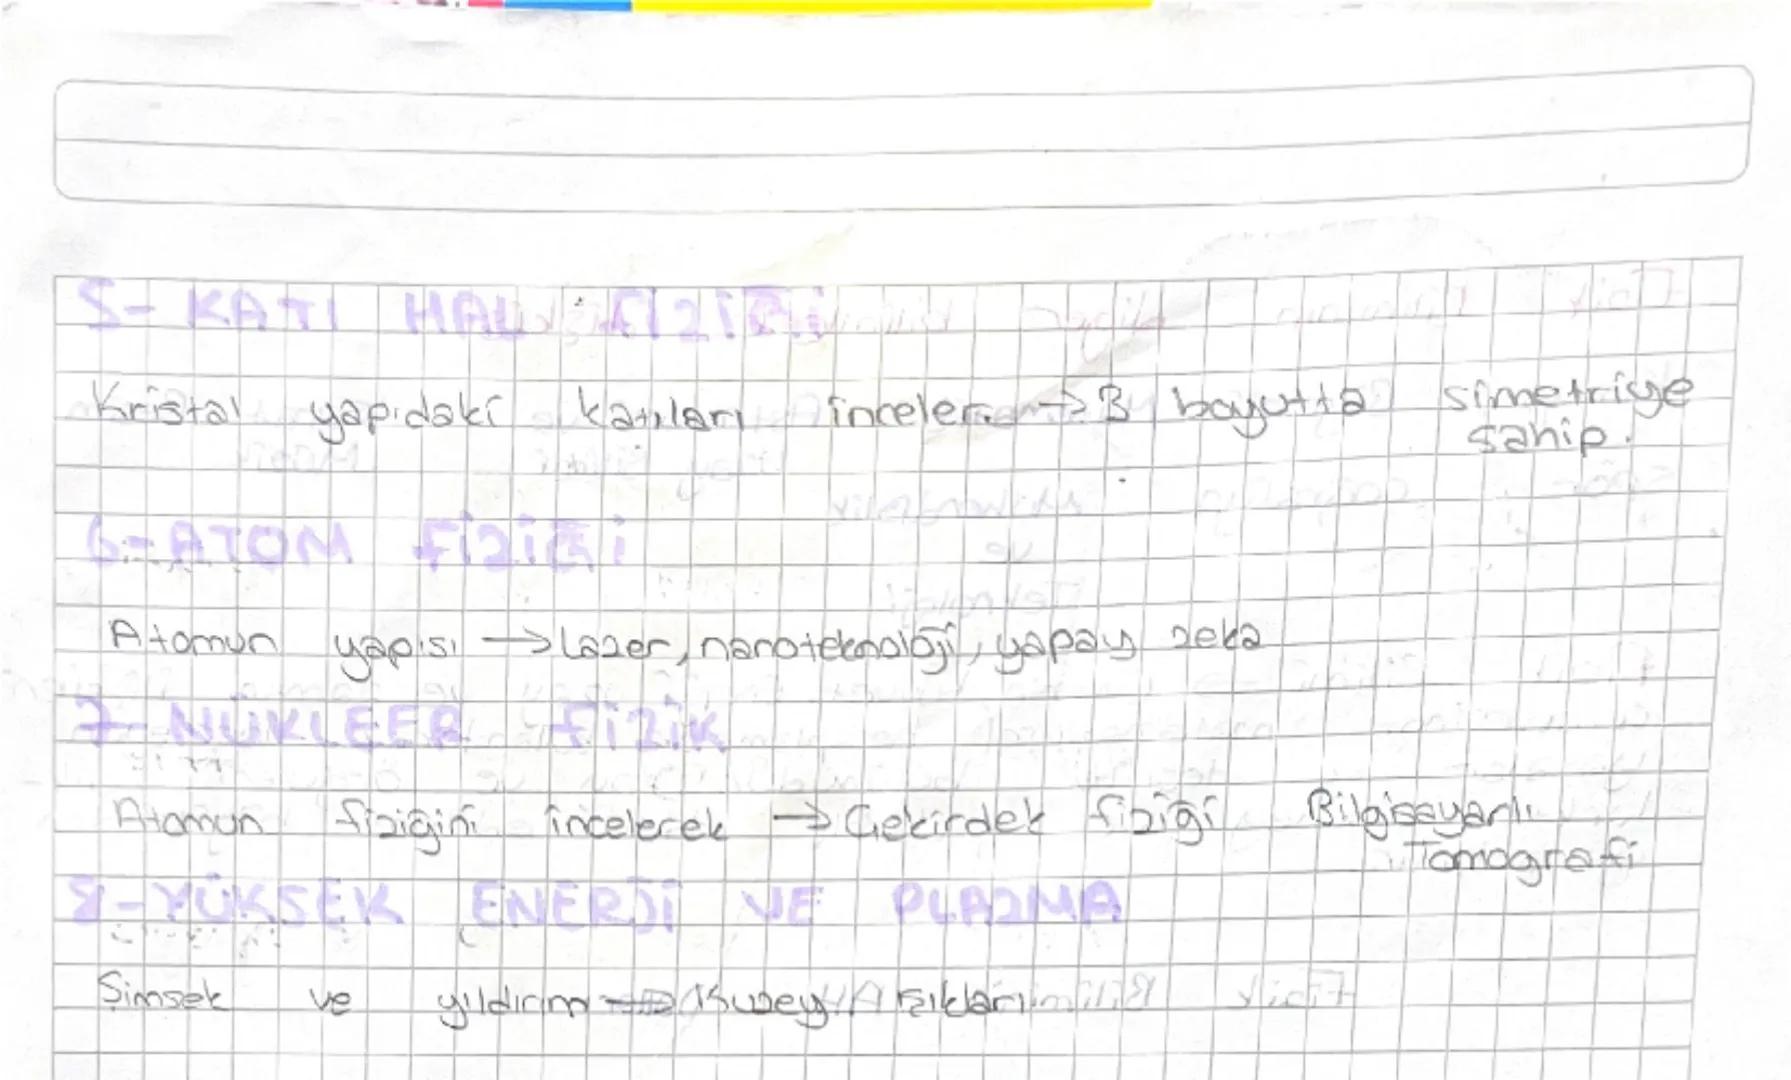 5- KATI HAL FİZİĞİ
Kristal yapıdaki katıları inceler. → 3 boyutta simetriye
sahip.
6- ATOM FİZİĞİ
Atomun yapısı → Lazer, nanoteknoloji, yapay zeka
7- NÜKLEER FİZİK
Atomun fiziğini incelerek → Çekirdek fiziği Bilgisayarlı
Tomografi
8- YÜKSEK ENERJİ VE PLAZMA
Şimsek ve yıldırım → Kuzey Işıkları